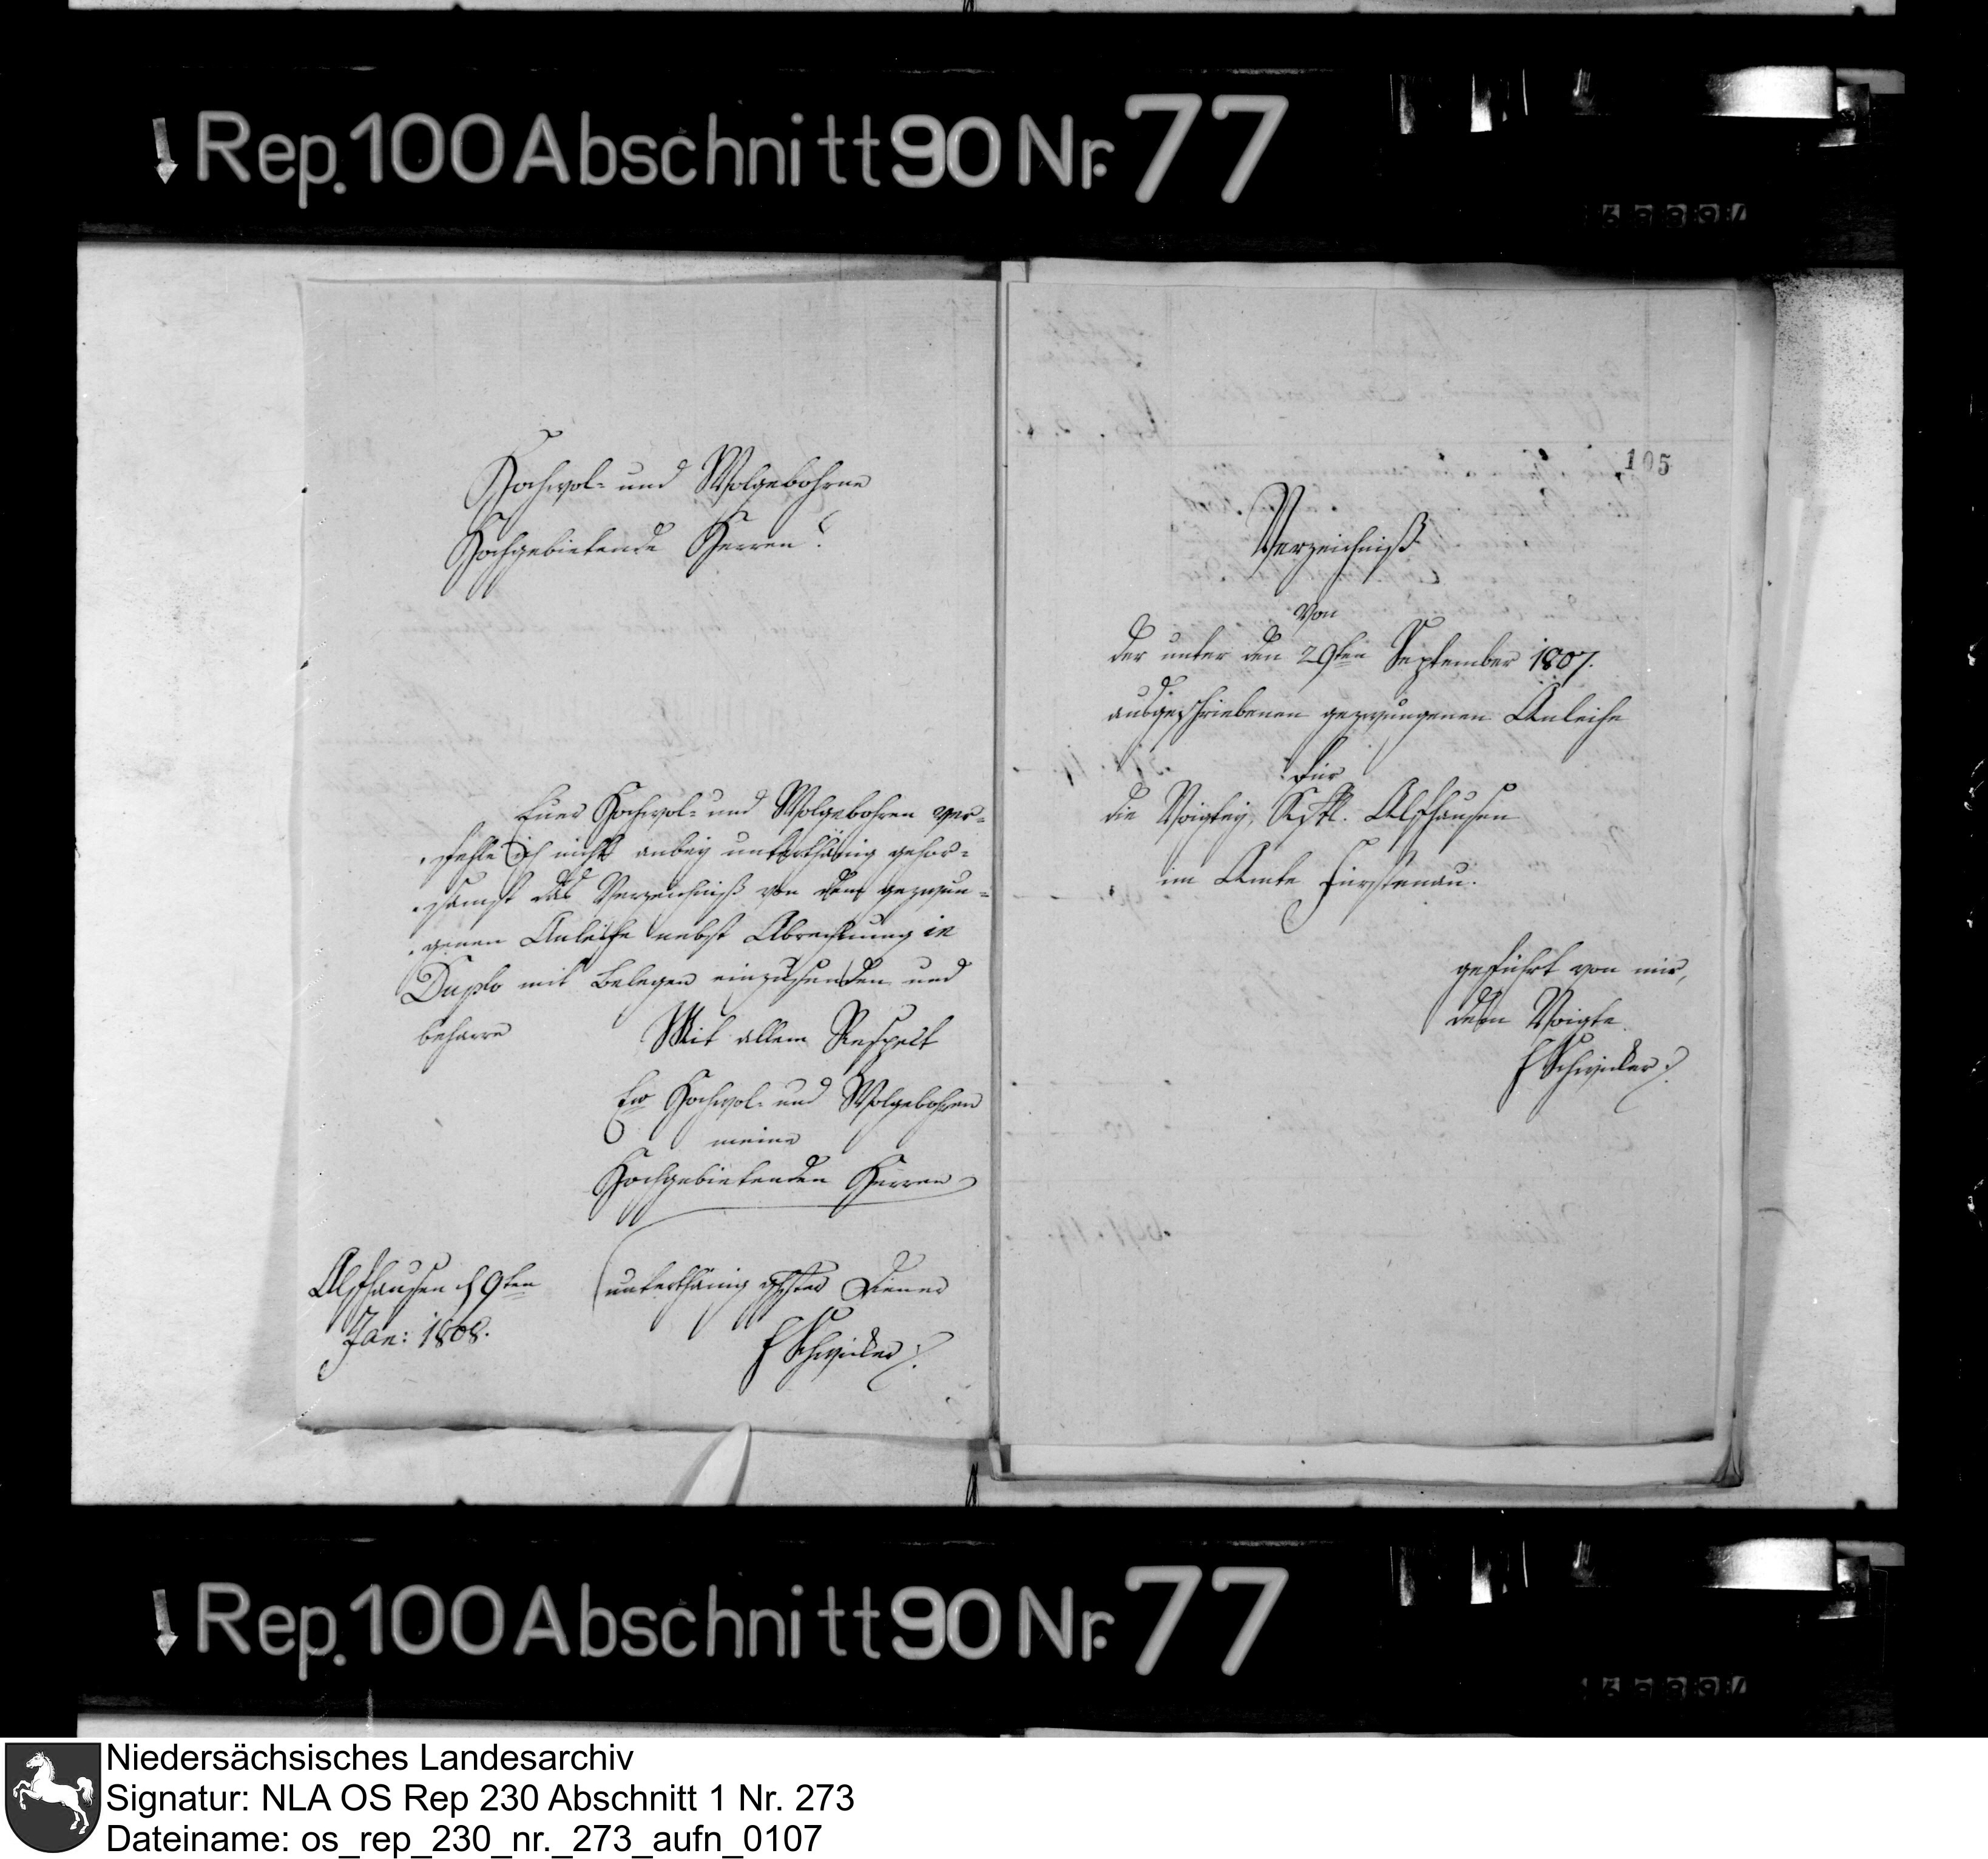 Rep. 100 Abschnitt 90 Nr. 77
Hochwol- und Wolgebohrne
Hochgebietende Herren!
Euer Hochwol- und Wolgebohren ver-
fehle ich nicht anbey unterthänig gehor-
samst das Verzeichniß von dem gezwun-
genen Anleihe nebst Abrechnung in
Duplo mit Belegen einzusenden und
beharre
Mit allem Respect
Ew Hochwol- und Wolgebohren
meine
Hochgebietenden Herren
Alfhausen d 9ten
Jan: 1808.
unterthänig Diener
Schwicker
105
Verzeichniß
von
der unter den 29ten September 1807.
ausgeschriebenen gezwungenen Anleihe
für
die Voigtey, Kspl. Alfhausen
im Amte Fürstenau.
geführt von mir,
dem Voigte
Schwicker
Rep. 100 Abschnitt 90 Nr. 77
Niedersächsisches Landesarchiv
Signatur: NLA OS Rep 230 Abschnitt 1 Nr. 273
Dateiname: os_rep_230_nr._273_aufn_0107